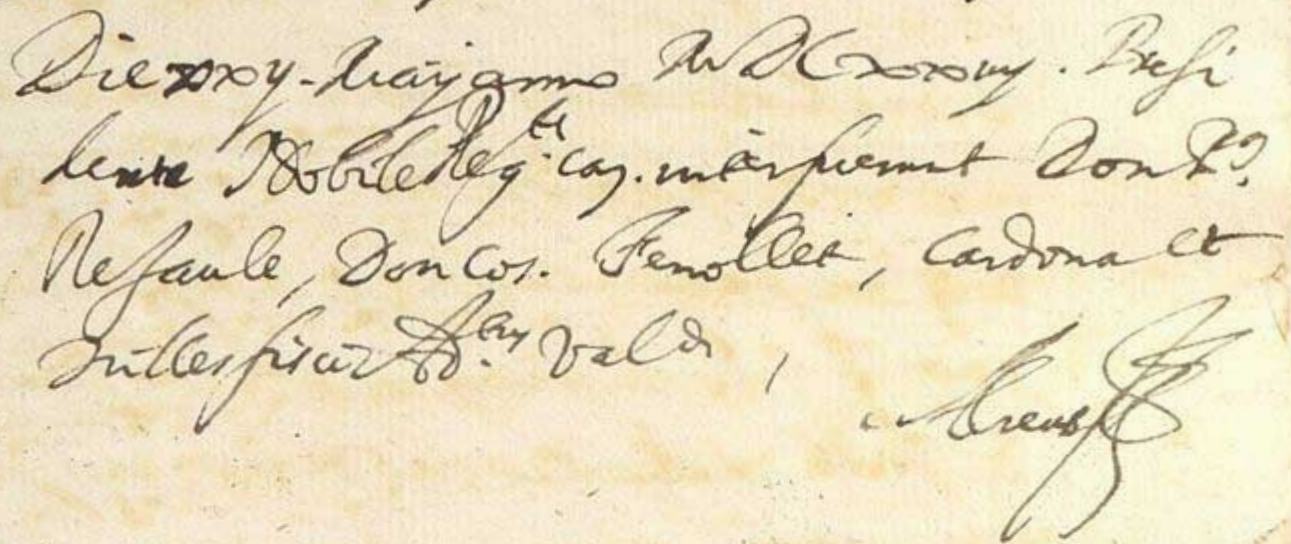 Die xxij Maij anno MDCxxiiij. Presi
dente Nobile Reg.te can. interfuerunt Don P.o
Resaule, Don Cos. Fenollet, Cardona et
fisci Ad.tus Valdi,